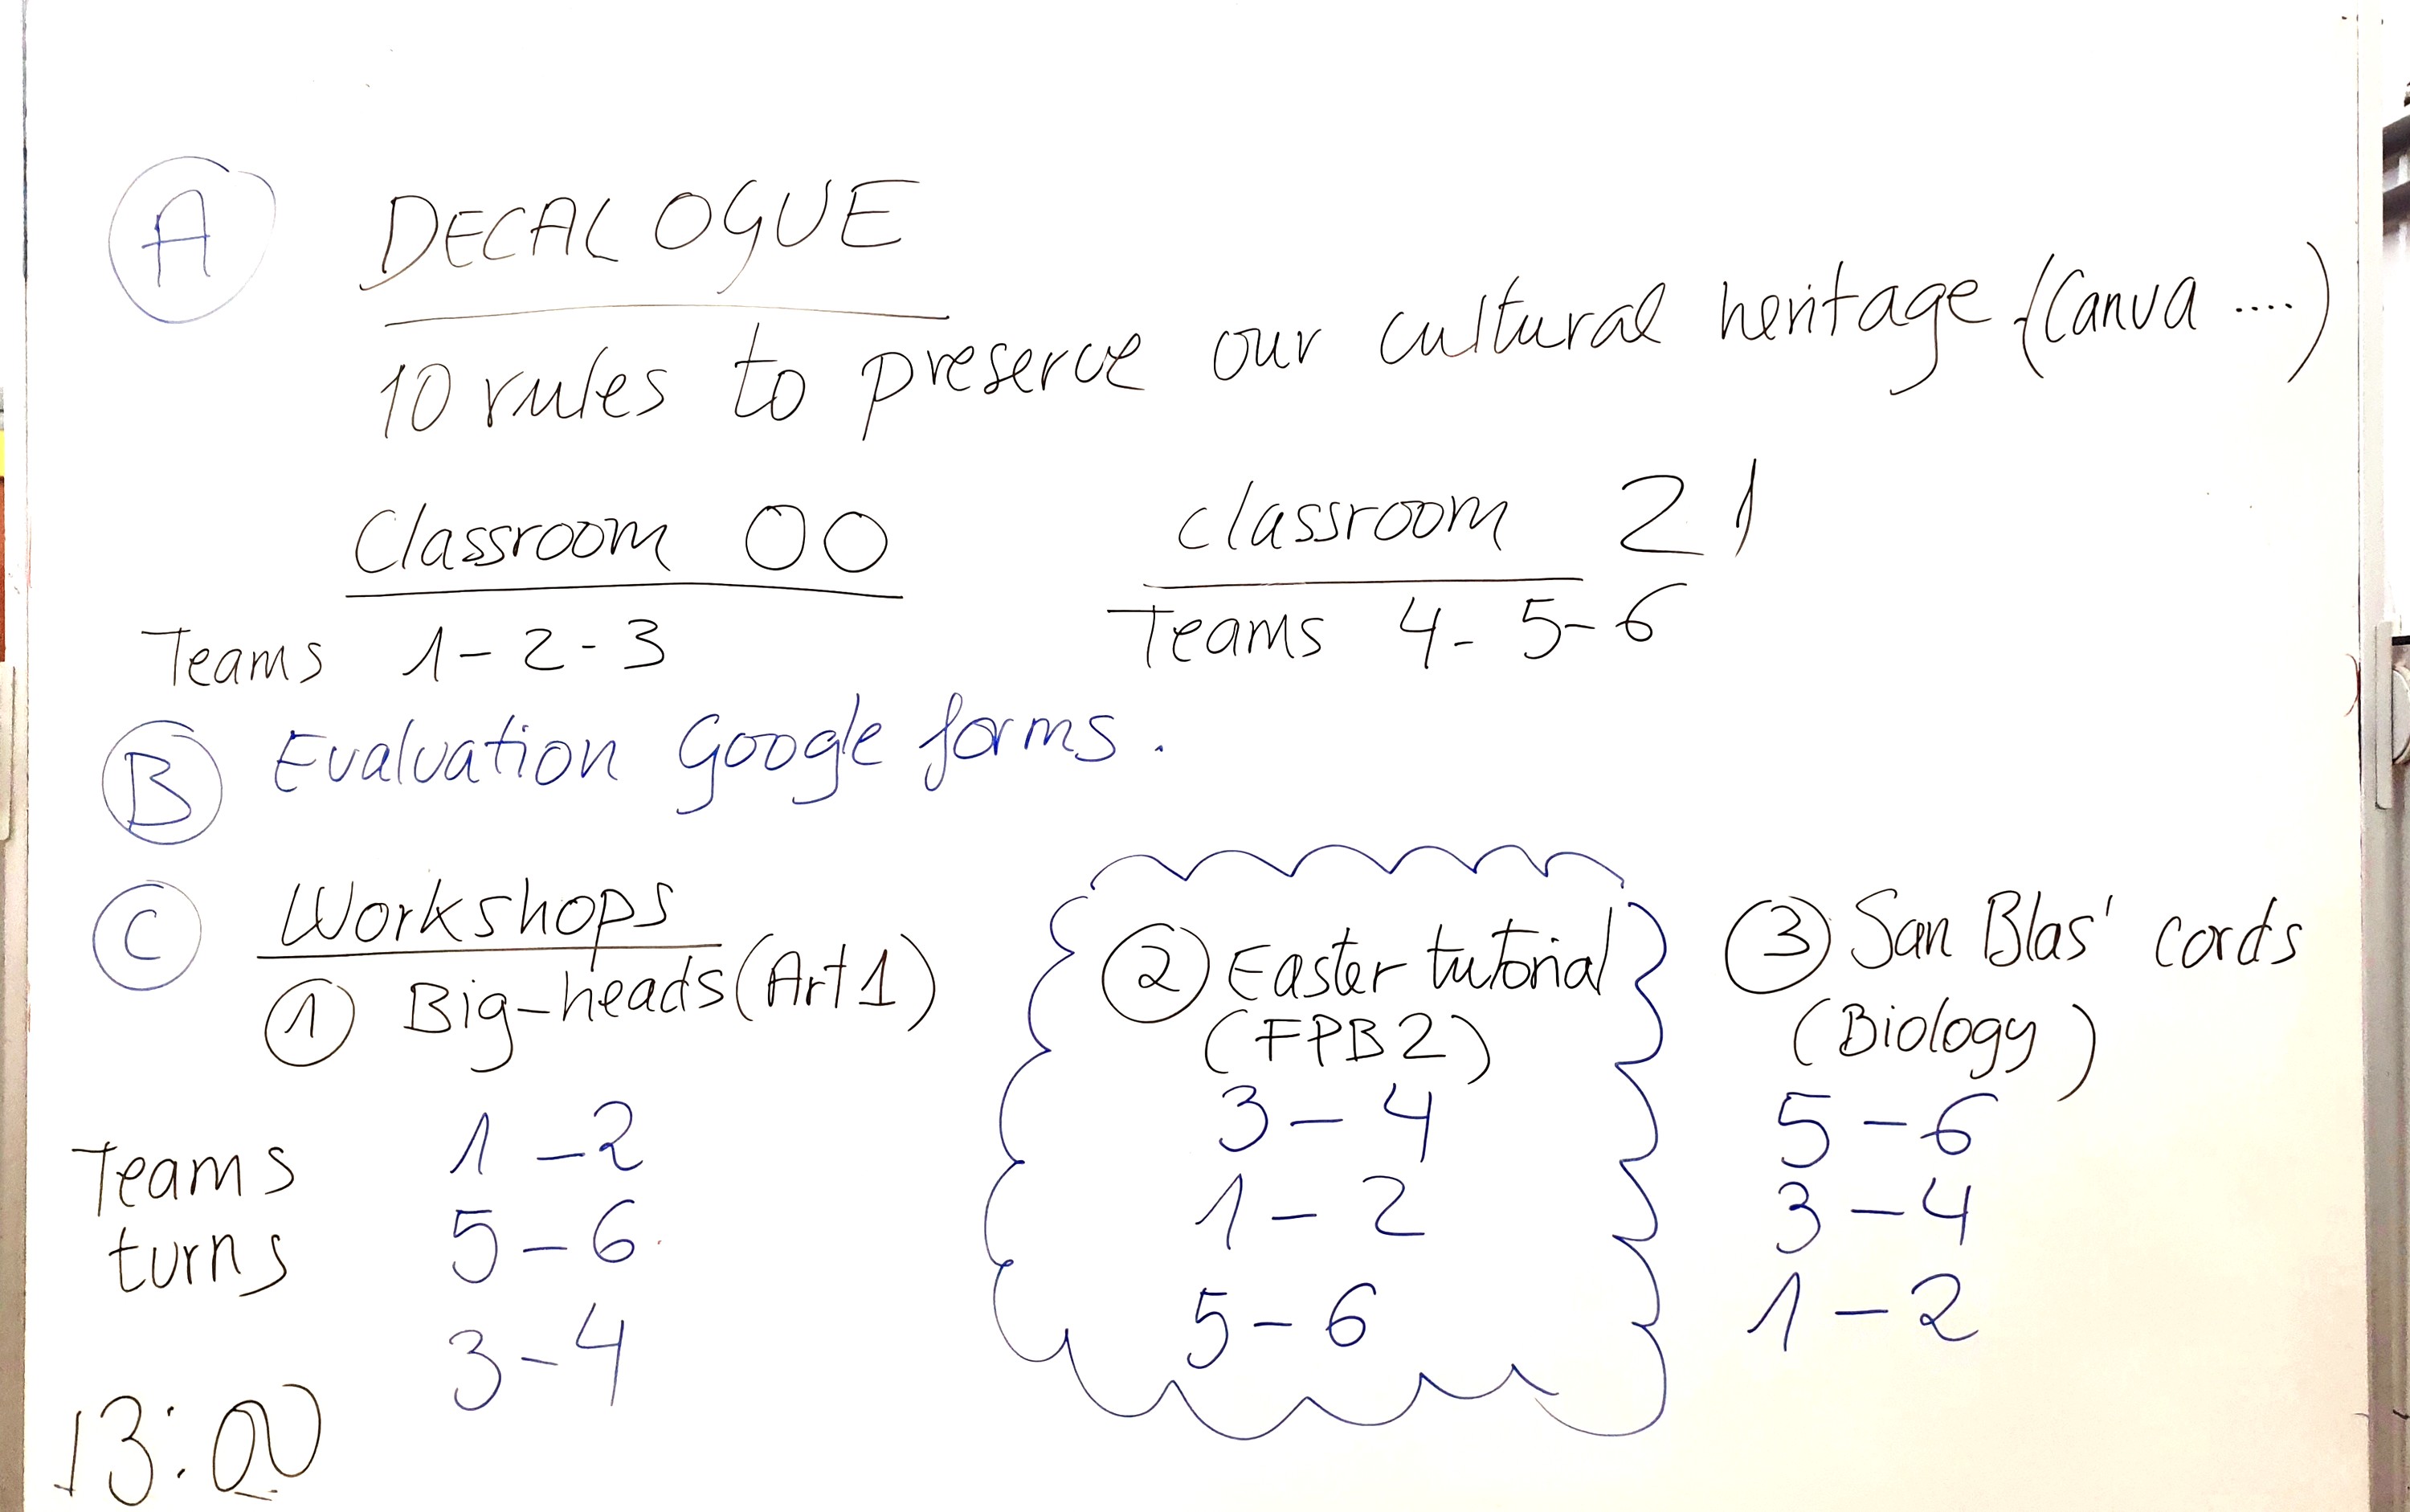 A DECALOGUE
10 rules to preserve our cultural heritage (Canva ....)
Classroom 00 classroom 21
Teams 1-2-3 Teams 4-5-6
B Evaluation Google forms.
C Workshops
1 Big-heads (Art 1) 2 Easter tutorial 3 San Blas' cords
(FPB2) (Biology)
Teams 1-2 3-4 5-6
turns 5-6 1-2 3-4
3-4 5-6 1-2
13:00